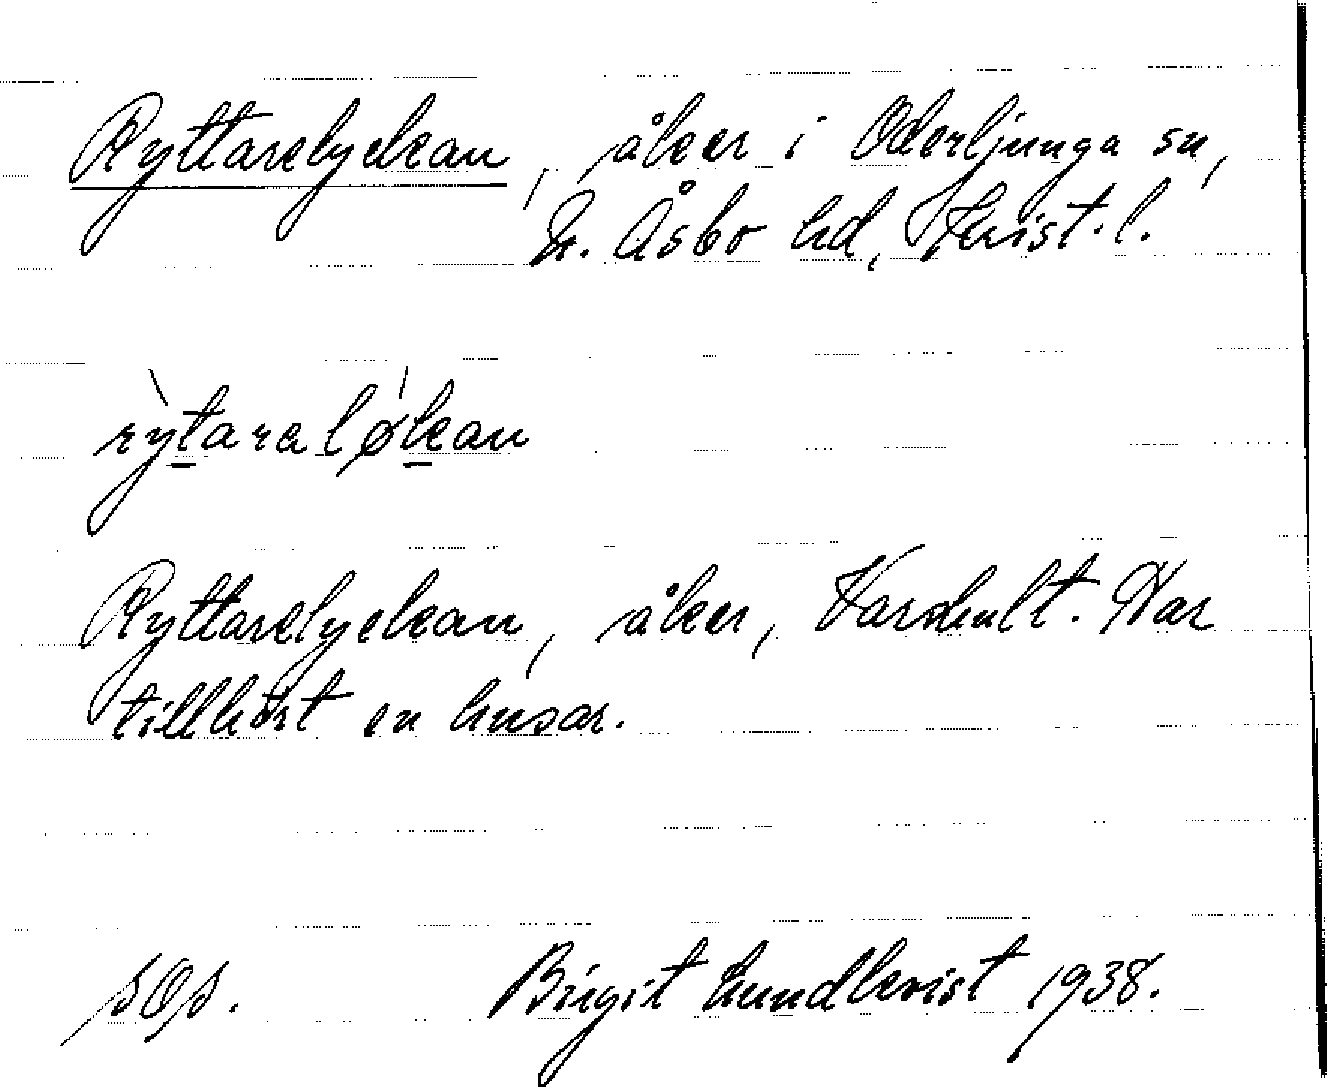 Ryttarelyckan, åker i Oderljunga sn,
N. Åsbo hd, Krist. l.
rỳtarelǿkan
Ryttarelyckan, åker, Varshult. Har
tillhört en husar.
Birgit Lundkvist 1938.